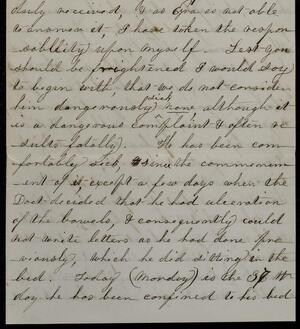 duly received, & as Ezra is not able
to answer it, I have taken the respon
sibility upon myself. Lest you
should be frightened I would say
to begin with, that we do not consider
him dangerously sick now although it
is a dangerous complaint & often re
sults fatally). He has been com
fortably sick, & since the commencem
ent of it, except a few days when the
Doct decided that he had ulceration
of the bowels, & consequently could
not write letters as he had done pre
viously, which he did sitting in the
bed. Today (Monday) is the 37
day he has been confined to his bed